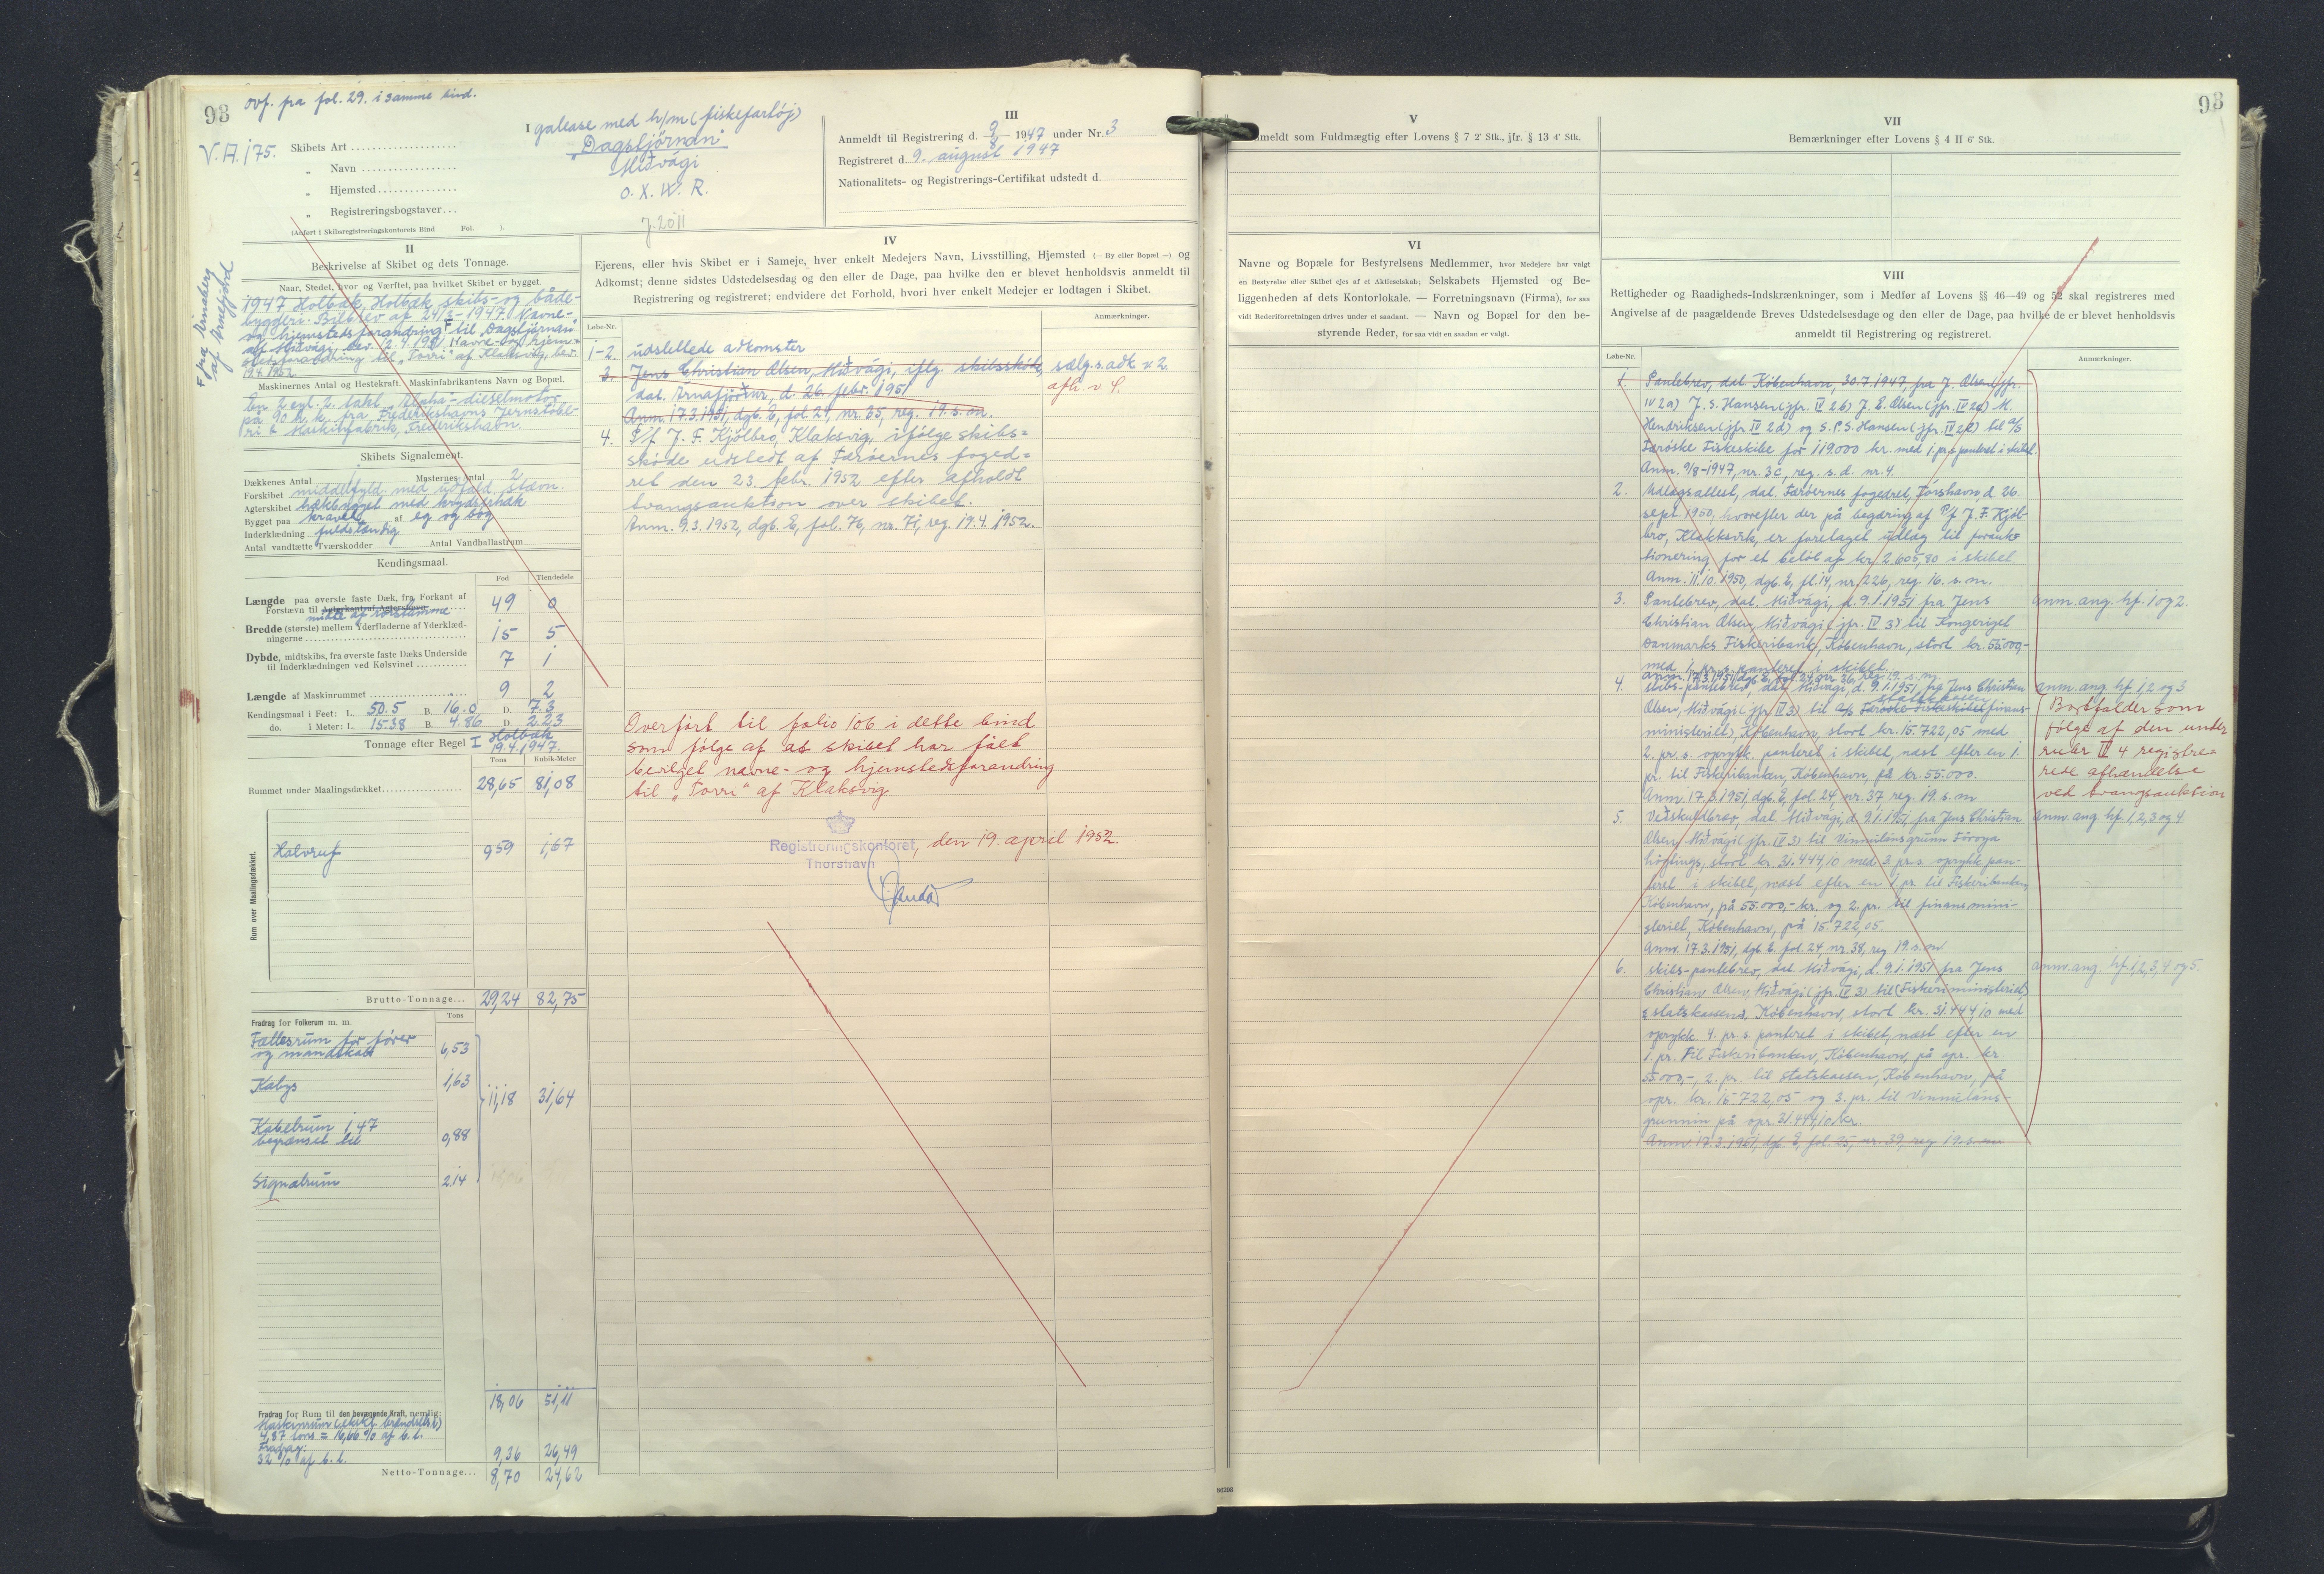 93
ovf. fra fol. 29. i samme bind.
V.A. 175.
I galease med h/m (fiskefartøj)
Skibets Art
„ Navn
„Dagstjørnan“
„ Hjemsted
Miðvági
„ Registreringsbogstaver
O. X. W. R.
(Anført i Skibsregistreringskontorets Bind Fol. ).
J. 2011
III
Anmeldt til Registrering d. 9/8 1947 under Nr. 3
Registreret d. 9. august 1947
Nationalitets- og Registrerings-Certifikat udstedt d.
F fra Arnaberg
af Arnefjord
II
Beskrivelse af Skibet og dets Tonnage.
Naar, Stedet, hvor og Værftet, paa hvilket Skibet er bygget.
1947 Holbæk, Holbæk skibs- og både-
byggeri. Bilbrev af 24/3-1947. Navne-
og hjemstedsforandring F til „Dagstjørnan“
af Miðvági, bev. 12.4.1951 Navne- og hjem-
stedsforandring til „Torri“ af Klaksvig, bev.
19.4.1952
Maskinernes Antal og Hestekraft. Maskinfabrikantens Navn og Bopæl.
En 2 cyl. 2. takt „Alpha“-dieselmotor
på 90 h.k. fra Frederikshavns Jernstøbe-
ri & Maskinfabrik, Frederikshavn.
Skibets Signalement.
Dækkenes Antal 1 Masternes Antal 2
Forskibet middelfyld. med udfald. stævn.
Agterskibet hækbygget med krydserhæk
Bygget paa kravel af eg og bøg
Inderklædning fuldstændig
Antal vandtætte Tværskodder Antal Vandballastrum
Kendingsmaal.
Fod Tiendedele
Længde paa øverste faste Dæk, fra Forkant af
Forstævn til Agterkant af Agterstævn 49 0
midte af rorstamme
Bredde (største) mellem Yderfladerne af Yderklæd-
ningerne 15 5
Dybde, midtskibs, fra øverste faste Dæks Underside
til Inderklædningen ved Kølsvinet 7 1
Længde af Maskinrummet 9 2
Kendingsmaal i Feet: L. 50.5 B. 16.0 D. 7.3
do. i Meter: L. 15.38 B. 4.86 D. 2.23
Tonnage efter Regel I Holbæk
19.4.1947.
Tons Kubik-Meter
Rummet under Maalingsdækket 28,65 81,08
Rum over Maalingsdækket.
Halvruf 0,59 1,67
Brutto-Tonnage 29,24 82,75
Fradrag for Folkerum m. m. Tons
Fællesrum for fører
og mandskab 6,53
Kabys 1,63
11,18 31,64
Kabelrum 1,47
begrænset til 0,88
Signalrum 2,14
18,06 51,11
Fradrag for Rum til den bevægende Kraft, nemlig:
Maskinrum (ekskl. brændselst.)
4,87 tons = 16,66 % af b.t.
Fradrag:
32 % af b.t. 9,36 26,49
Netto-Tonnage 8,70 24,62
IV
Ejerens, eller hvis Skibet er i Sameje, hver enkelt Medejers Navn, Livsstilling, Hjemsted (— By eller Bopæl —) og
Adkomst; denne sidstes Udstedelsesdag og den eller de Dage, paa hvilke den er blevet henholdsvis anmeldt til
Registrering og registreret; endvidere det Forhold, hvori hver enkelt Medejer er lodtagen i Skibet.
Løbe-Nr. Anmærkninger.
1-2. udslettede adkomster
3. Jens Christian Olsen, Miðvági, iflg. skibsskøde, sælg.s.adk v 2
dat. Arnafjørður, d. 26. febr. 1951 afh. v. 4.
Anm. 17.3.1951, dgb. E, fol 24, nr. 35, reg. 19. s.m.
4. P/f J. F. Kjølbro, Klaksvig, ifølge skibs=
skøde udstedt af Færøernes foged=
ret den 23. febr. 1952 efter afholdt
tvangsauktion over skibet.
Anm. 9.3.1952, dgb. E, fol. 76, nr. 71, reg. 19.4.1952.
Overført til folio 106 i dette bind
som følge af at skibet har fået
bevilget navne- og hjemstedsforandring
til „Torri“ af Klaksvig
Registreringskontoret, den 19. april 1952.
Thorshavn
93
V
Anmeldt som Fuldmægtig efter Lovens § 7 2' Stk., jfr. § 13 4' Stk.
VI
Navne og Bopæle for Bestyrelsens Medlemmer, hvor Medejere har valgt
en Bestyrelse eller Skibet ejes af et Aktieselskab; Selskabets Hjemsted og Be-
liggenheden af dets Kontorlokale. — Forretningsnavn (Firma), for saa
vidt Rederiforretningen drives under et saadant. — Navn og Bopæl for den be-
styrende Reder, for saa vidt en saadan er valgt.
VII
Bemærkninger efter Lovens § 4 II 6' Stk.
VIII
Rettigheder og Raadigheds-Indskrænkninger, som i Medfør af Lovens §§ 46—49 og 52 skal registreres med
Angivelse af de paagældende Breves Udstedelsesdage og den eller de Dage, paa hvilke de er blevet henholdsvis
anmeldt til Registrering og registreret.
Løbe-Nr. Anmærkninger.
1. Pantebrev, dat. København, 30.7.1947 fra J. Olsen (jfr.
IV 2a) J. S. Hansen (jfr. IV 2b) J. E. Olsen (jfr. IV 2c) M.
Hendriksen (jfr. IV 2d) og S.P.S. Hansen (jfr. IV 2e) til A/S
Færøske Fiskeskibe for 119.000 kr. med 1. pr. s panteret i skibet.
Anm. 9/8-1947, nr. 3c, reg. s.d. nr. 4.
2. Udlægsattest, dat. Færøernes fogedret, Tórshavn d. 26.
sept. 1950, hvorefter der på begæring af P/f J. F. Kjøl-
bro, Klakksvík, er foretaget udlæg til forauk-
tionering for et beløb af kr. 2.605,80 i skibet
Anm. 11.10.1950, dgb. E, fl. 14, nr. 226, reg. 16. s.m.
3. Pantebrev, dat. Miðvági, d. 9.1.1951 fra Jens anm. ang. hf. 1 og 2.
Christian Olsen, Miðvági (jfr. IV 3) til Kongeriget
Danmarks Fiskeribank, København, stort kr. 55.000,-
med 1. pr. s. panteret i skibet.
Anm. 17.3.1951, dgb E, fol. 24, nr. 36, reg. 19. s.m.
4. Skibs-pantebrev, dat. Miðvági, d. 9.1.1951, fra Jens Christian anm. ang. hf 1, 2 og 3
Olsen, Miðvági (jfr. IV 3) til A/S Færøske Fiskeskibe finans-
ministeriet) København, stort kr. 15.722,05 med
2. pr. s. oprykk. panteret i skibet, næst efter en 1.
pr. til Fiskeribanken, København, på kr. 55.000.
Anm. 17.3.1951, dgb. E, fol. 24, nr. 37, reg. 19. s.m
Bortfalder som
følge af den under
rubr IV 4 registre=
rede afhændelse
ved tvangsauktion
5. Veðskuldbrev, dat Miðvági, d. 9.1.1951 fra Jens Christian anm. ang. hf. 1, 2, 3 og 4
Olsen, Miðvági (jfr. IV 3) til Vinnulánsgrunn Føroya
løgtings, stort kr. 31.444,10 med 3. pr. s. oprykk. pan-
teret i skibet, næst efter en 1. pr. til Fiskeribanken,
København, på 55.000,- kr. og 2. pr. til finansmini-
steriet, København, på 15.722,05.
Anm. 17.3.1951, dgb. E. fol. 24, nr. 38, reg 19. s.m
6. Skibs-pantebrev, dat. Miðvági, d. 9.1.1951 fra Jens anm. ang. hf. 1, 2, 3, 4 og 5.
Christian Olsen, Miðvági (jfr. IV 3) til (Fiskeriministeriet)
statskassen, København, stort kr. 31.444,10 med
oprykk. 4. pr. s. panteret i skibet, næst efter en
1. pr. til Fiskeribanken, København, på opr. kr.
55.000,-, 2. pr. til statskassen, København, på
opr. kr. 15.722,05 og 3. pr. til Vinnuláns-
grunnin på opr. 31.444,10 kr.
Anm. 17.3.1951, dgb. E, fol. 25, nr. 39, reg 19. s.m